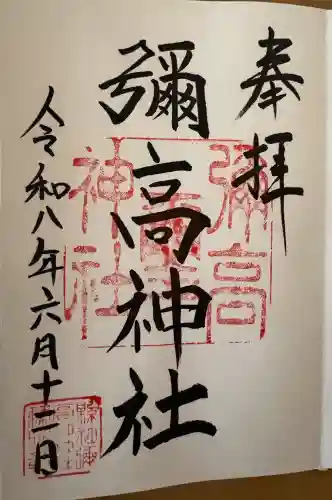 奉拝
彌高神社
令和八年六月十二日
彌高
神社